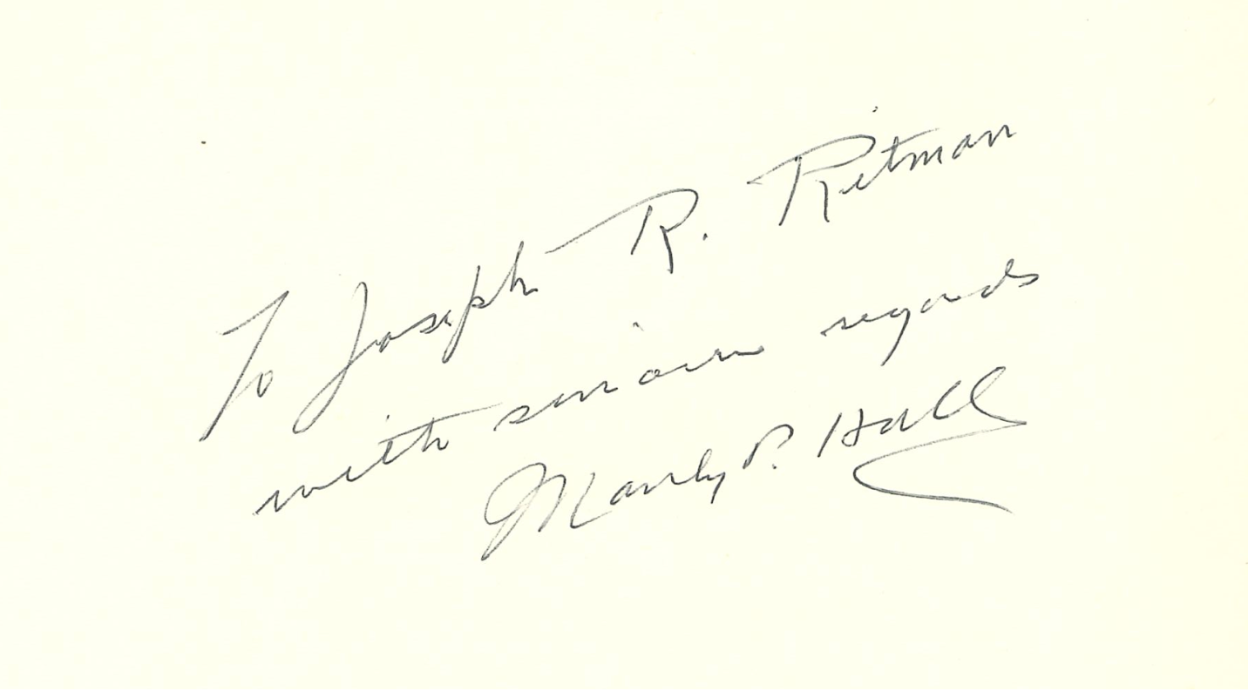 To Joseph R. Ritman
with sincere regards
Manly P. Hall